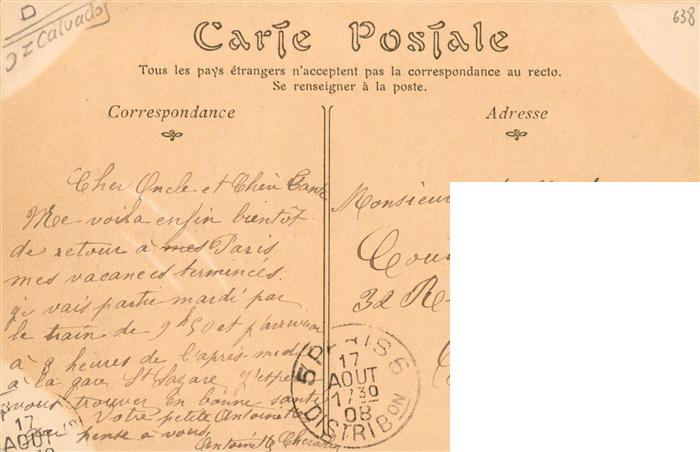 D
oz Calvados
638
Carte Postale
Tous les pays étrangers n'acceptent pas la correspondance au recto.
Se renseigner à la poste.
Correspondance
Adresse
Cher Oncle et Chère Tante
Me voila enfin bientot
de retour à mes Paris
mes vacances terminées.
je vais partie mardi par
le train de 9h50 et j'arriverai
à 3 heures de l'après midi
a la gare St Lazare j'espère
vous trouver En bonne santé
Votre petite Antoinette
pense à vous
Antoinette
Monsieur
Cou
32 R
PARIS 5
17
AOUT
17 30
08
DISTRIBON
17
AOUT